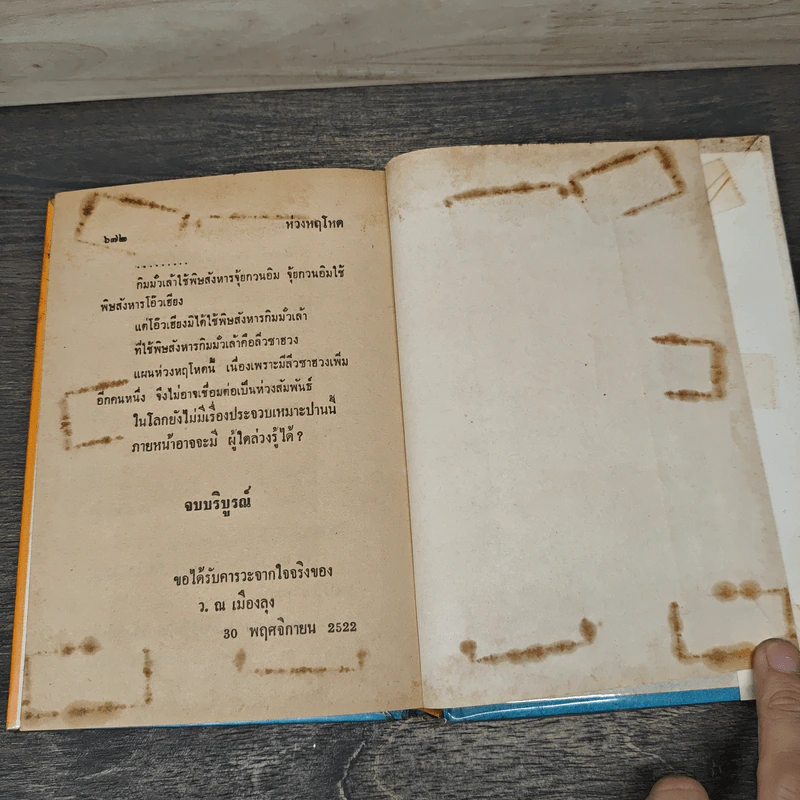 ๖๗๒ ห่วงหฤโหด
.........
กิมมั่วเล้าใช้พิษสังหารจุ้ยกวนอิม จุ้ยกวนอิมใช้
พิษสังหารโอ๊วเฮียง
แต่โอ๊วเฮียงมิได้ใช้พิษสังหารกิมมั่วเล้า
ที่ใช้พิษสังหารกิมมั่วเล้าคือลิ่วซาฮวง
แผนห่วงหฤโหดนี้ เนื่องเพราะมีลิ่วซาฮวงเพิ่ม
อีกคนหนึ่ง จึงไม่อาจเชื่อมต่อเป็นห่วงสัมพันธ์
ในโลกยังไม่มีเรื่องประจวบเหมาะปานนี้
ภายหน้าอาจจะมี ผู้ใดล่วงรู้ได้ ?
จบบริบูรณ์
ขอได้รับคารวะจากใจจริงของ
ว. ณ เมืองลุง
30 พฤศจิกายน 2522